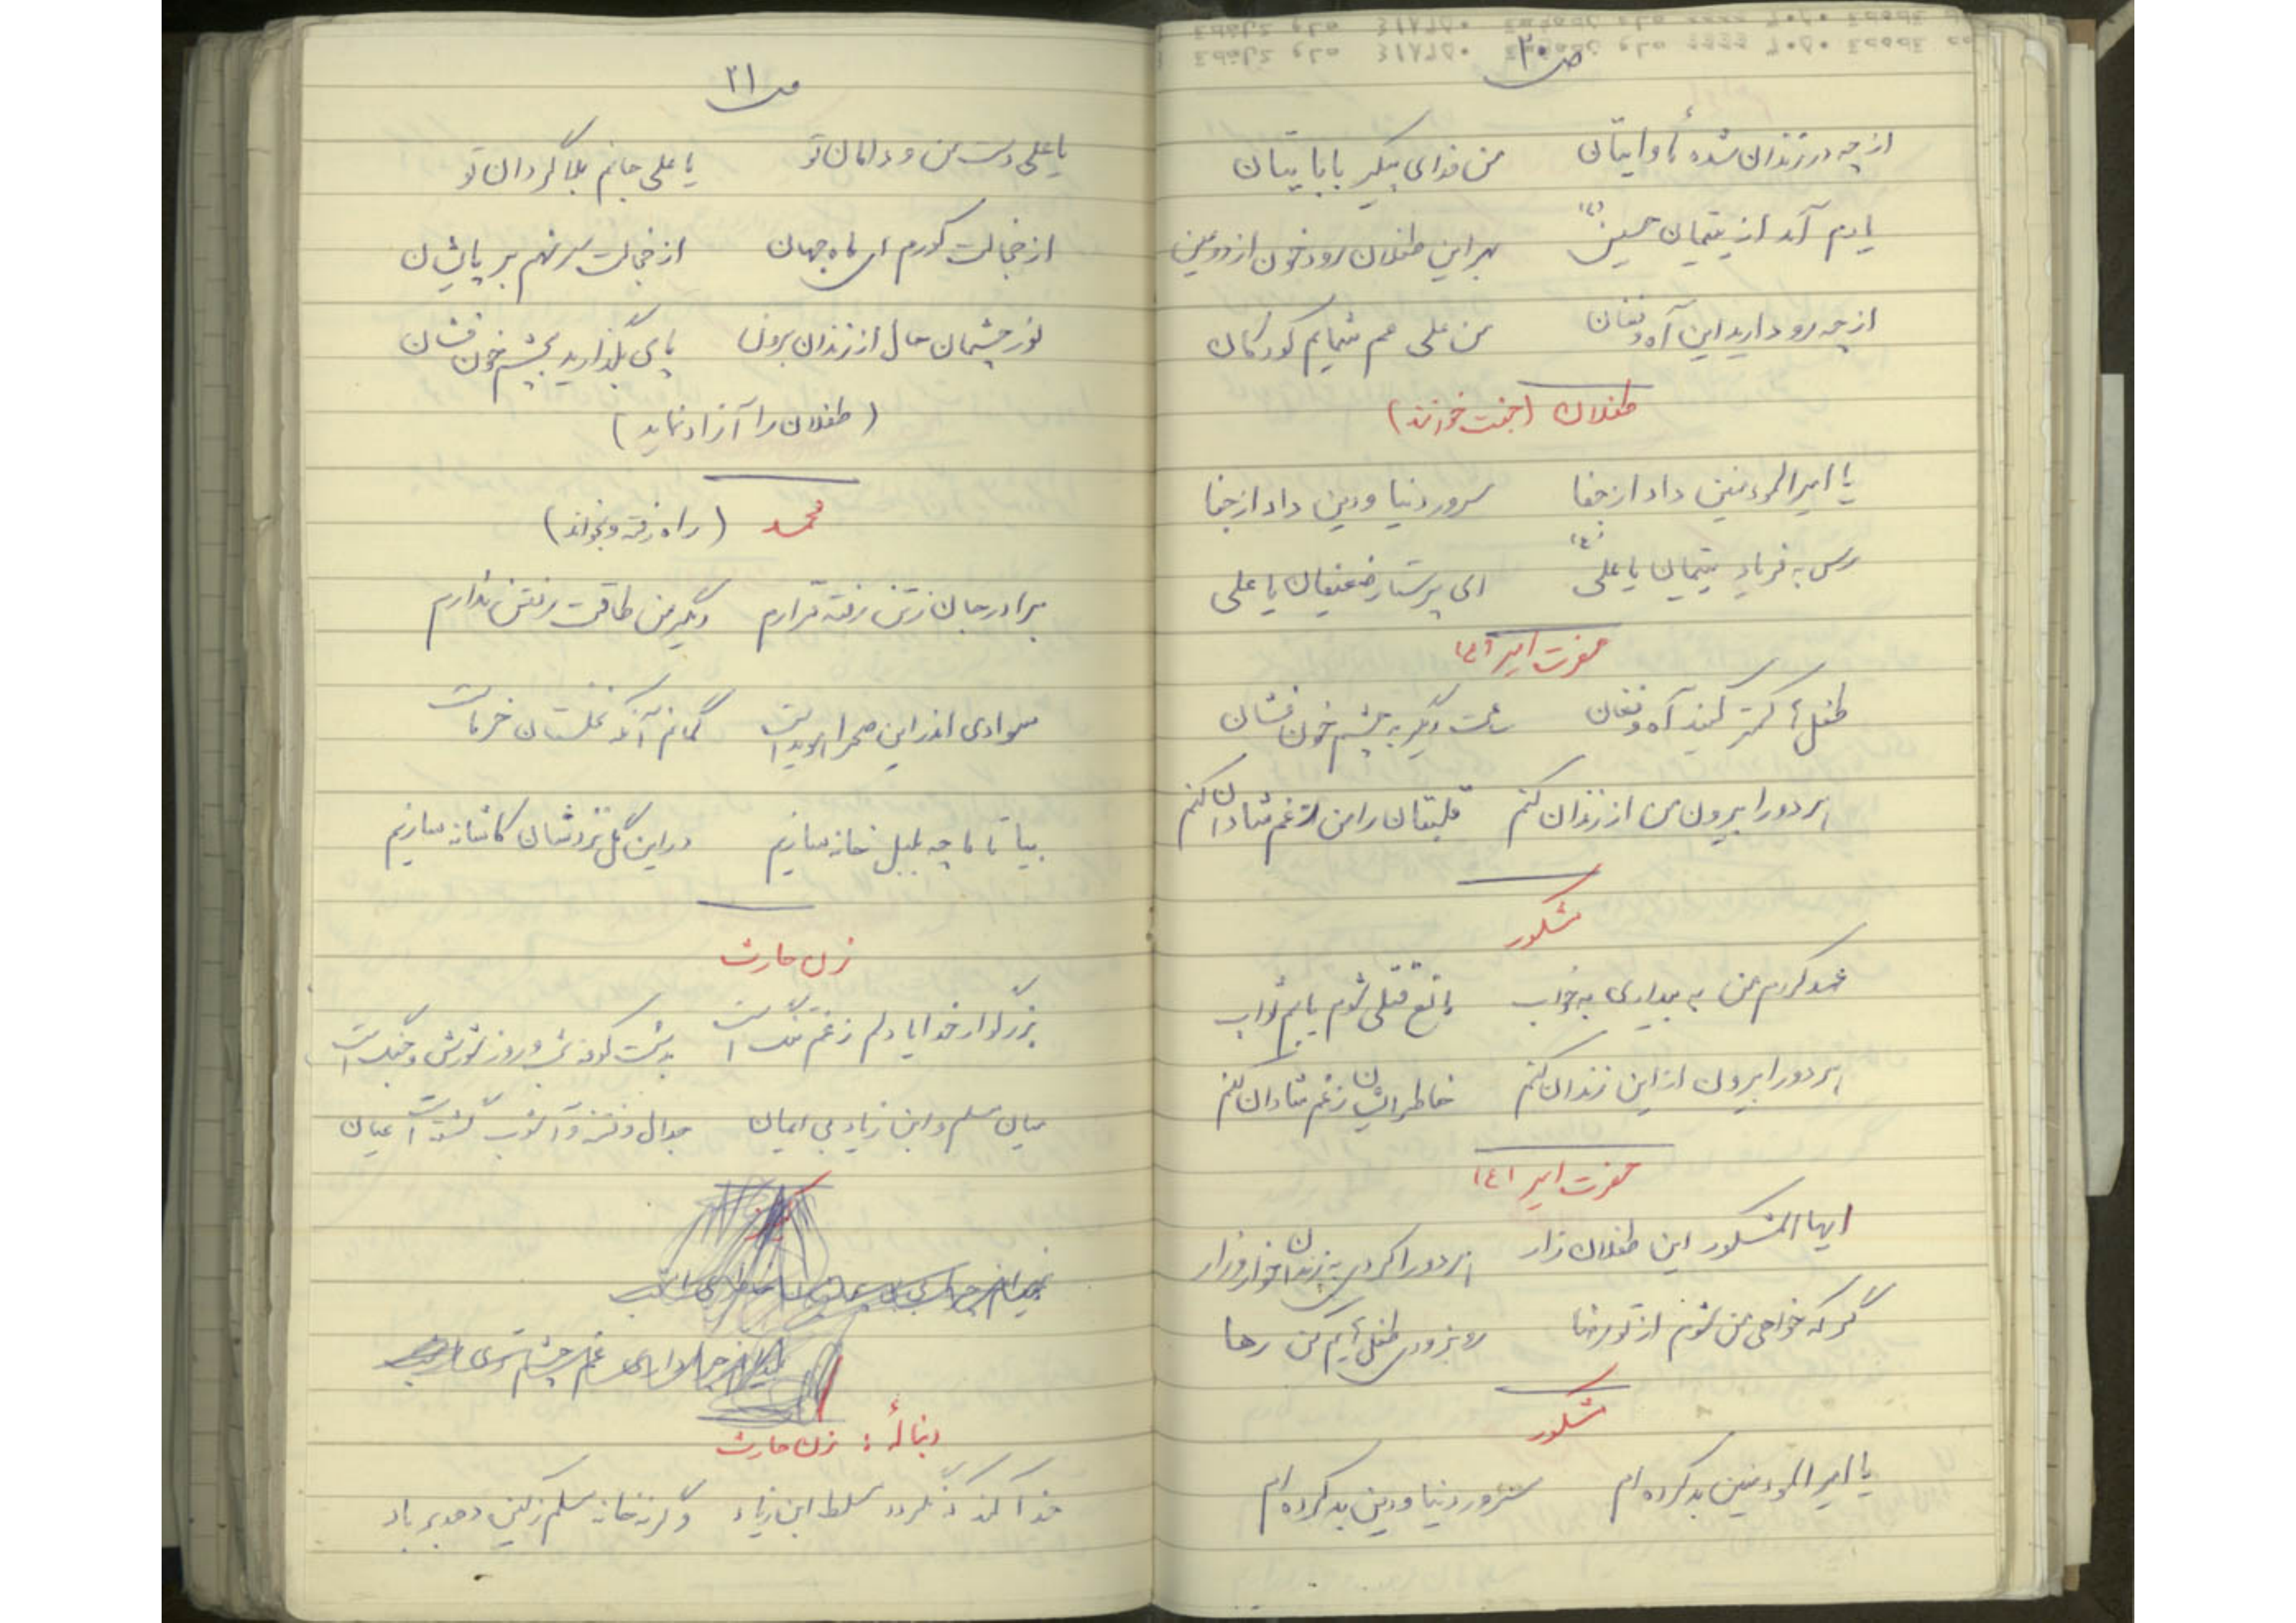 ص ۳۰
از چه در زندان شده مأوایتان من فدای پیکر بابایتان
یادم آمد از یتیمان حسین (ع) بهر این طفلان رود خون از دو عین
از چه رو دارید این آه و فغان من علی عم شمایم کودکان
طفلان (جفت خوانند)
یا امیرالمؤمنین داد از جفا سرور دنیا و دین داد از جفا
رس به فریاد یتیمان یا علی (ع) ای پرستار ضعیفان یا علی
حضرت امیر (ع)
طفل‌ها کمتر کنید آه و فغان دیگر به چشم خون فشان
هر دو را بیرون من از زندان کنم قلبتان را من ز غم شادان کنم
مشکور
عهد کردم من به بیداری به خواب مانع قتلی شوم یابم ثواب
هر دو را بیرون از این زندان کنم خاطر ایشان ز غم شادان کنم
حضرت امیر (ع)
ایها المشکور این طفلان زار هر دو را کردی به زندان خوار و زار
گر که خواهی من شوم از تو رضا رو بزودی طفلهایم کن رها
مشکور
یا امیرالمؤمنین بد کرده‌ام سرور دنیا و دین بد کرده‌ام
ص ۳۱
یا علی دست من و دامان تو یا علی جانم بلاگردان تو
از خجالت کورم ای ماه جهان از خجالت سر نهم بر پایشان
نور چشمان حال از زندان برون پای بگذارید بچشم خون فشان
(طفلان را آزاد نماید)
محمد (راه رفته و بخواند)
برادر جان ز تن رفته قرارم دیگر من طاقت رفتن ندارم
سوادی اندر این صحرا هویداست گمانم آنکه نخلستان خرماست
بیا تا ما چه بلبل خانه سازیم در این گل نزدشان کاشانه سازیم
زن حارث
بزرگوار خدایا دلم ز غم تنگ است بدشت کوفه شب و روز شورش و جنگ است
میان مسلم و ابن زیاد بی ایمان جدال و فتنه و آشوب گشته است عیان
دنباله: زن حارث
خدا کند که نگردد مسلط ابن زیاد وگرنه خانه مسلم ز کین دهد بر باد